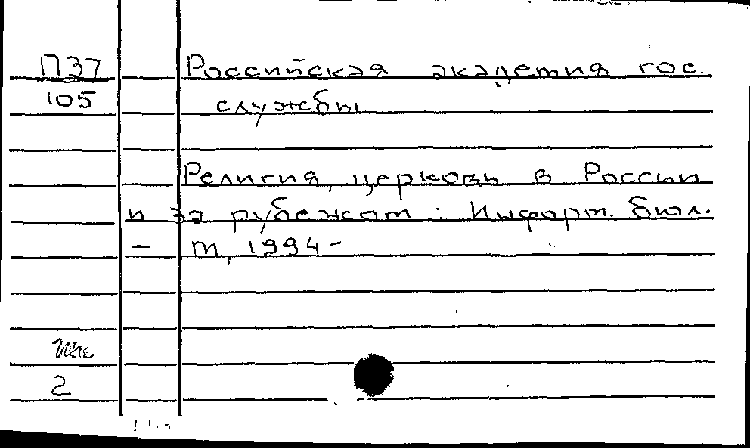 П37 Российская академия гос.
105 службы
Религия, церковь в России
и за рубежом: Информ. бюл.
– М, 1994 -
2